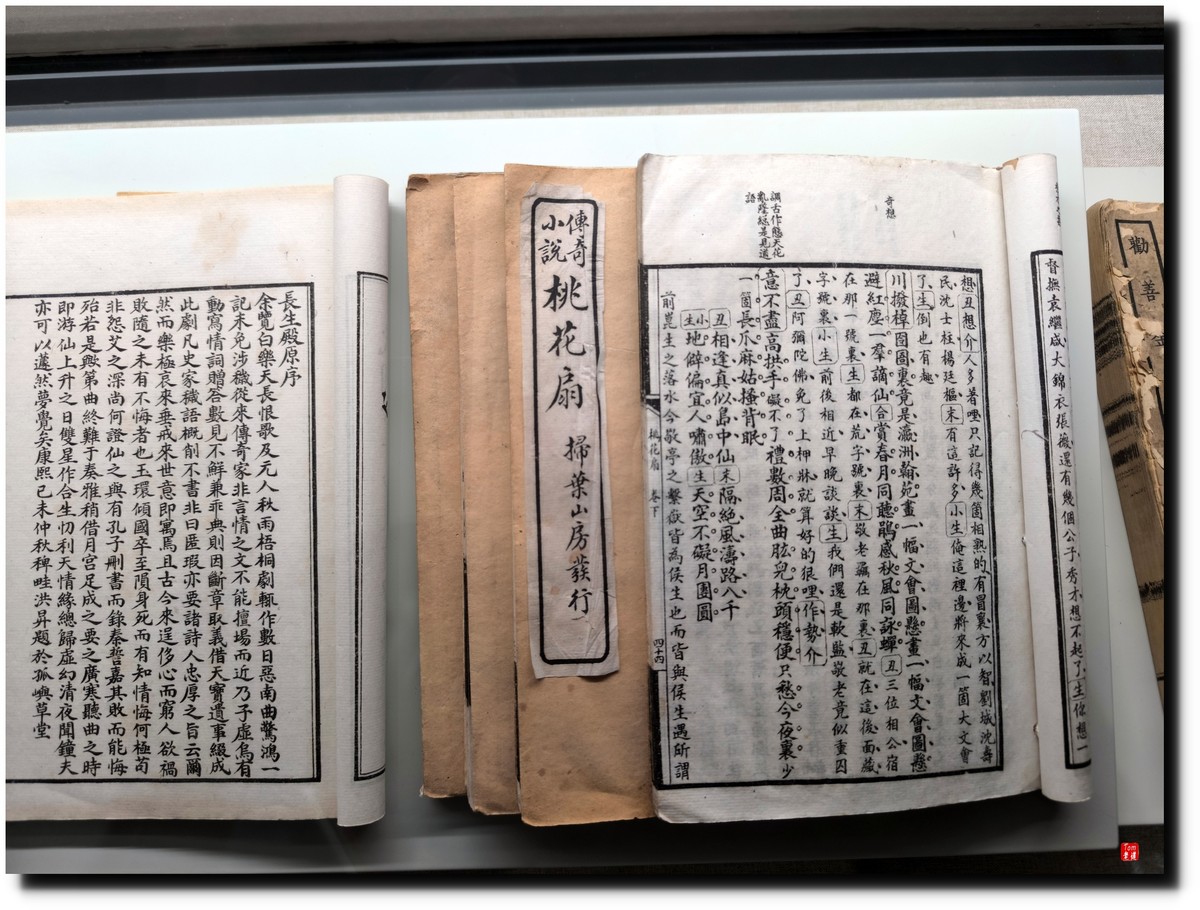 督撫袁繼咸大錦衣張薇還有幾個公子秀才想不起了生你想一
想丑想介人多着哩只記得幾箇相熟的有冒襄方以智劉城沈壽
民沈士柱楊廷樞末有這許多小生俺這裡邊將來成一箇大文會
了生倒也有趣
川撥棹圄圄裏竟是瀛洲翰苑畫一幅文會圖懸畫一幅文會圖懸
避紅塵一羣謫仙合賞春月同聽鵑感秋風同詠蟬丑三位相公宿
在那一號裏生都在荒字號裏末敬老羈在那裏丑就在這後面藏
字號裏小生前後相近早晚談談生我們還是軟監敬老竟似重囚
了丑阿彌陀佛免了上柙牀就算好的狠哩作勢介
意不盡高拱手礙不了禮數周全曲肱兒枕頭穩便只愁今夜裏少
一箇長爪麻姑搔背眠
丑相逢真似島中仙末隔絕風濤路八千
小生地僻偏宜人嘯傲生天空不礙月團圓
前崑生之落水今敬亭之繫獄皆為侯生也而皆與侯生遇所謂
奇想
調古作態天花
亂墜總是見道
語
桃花扇 卷下
四十四
傳奇
小說
桃花扇 掃葉山房發行
長生殿原序
余覽白樂天長恨歌及元人秋雨梧桐劇輒作數日惡南曲驚鴻一
記未免涉穢從來傳奇家非言情之文不能擅場而近乃子虛烏有
動寫情詞贈答數見不鮮兼乖典則因斷章取義借天寶遺事綴成
此劇凡史家穢語概削不書非曰匿瑕亦要諸詩人忠厚之旨云爾
然而樂極哀來垂戒來世意即寓焉且古今來逞侈心而窮人欲禍
敗隨之未有不悔者也玉環傾國卒至隕身死而有知情悔何極苟
非怨艾之深尚何證仙之與有孔子刪書而錄秦誓嘉其敗而能悔
殆若是歟第曲終難于奏雅稍借月宮足成之要之廣寒聽曲之時
即游仙上升之日雙星作合生忉利天情緣總歸虛幻清夜聞鐘夫
亦可以蘧然夢覺矣康熙己未仲秋稗畦洪昇題於孤嶼草堂
勸善